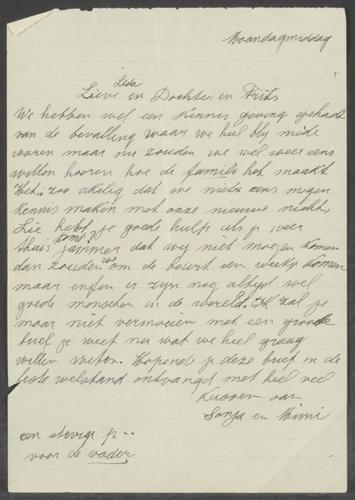 Maandagmiddag
Lida
Lieve en Dochter en Frits
We hebben wel een Kennis geving gehadt
van de bevalling waar we heel bly mede
waren maar nu zouden we wel weer eens
willen hooren hoe de familie het maakt
Het is zoo akelig dat we niet eens mogen
Kennis maken met onze nieuwe nicht.
Lie hebt je goede hulp als je weer
thuis komt, jammer dat wy niet moegen komen
dan zouden we om de beurt een weekje komen
maar enfin er zyn nog altyd wel
goede menschen in de wereld. Ik zal je
maar niet vermoeien met een groote
brief je weet nu wat we heel graag
willen weten. Hopend je deze brief in de
beste welstand ontvangd met heel veel
Kussen van
Sonja en Mimi
een stevige p..
voor de vader